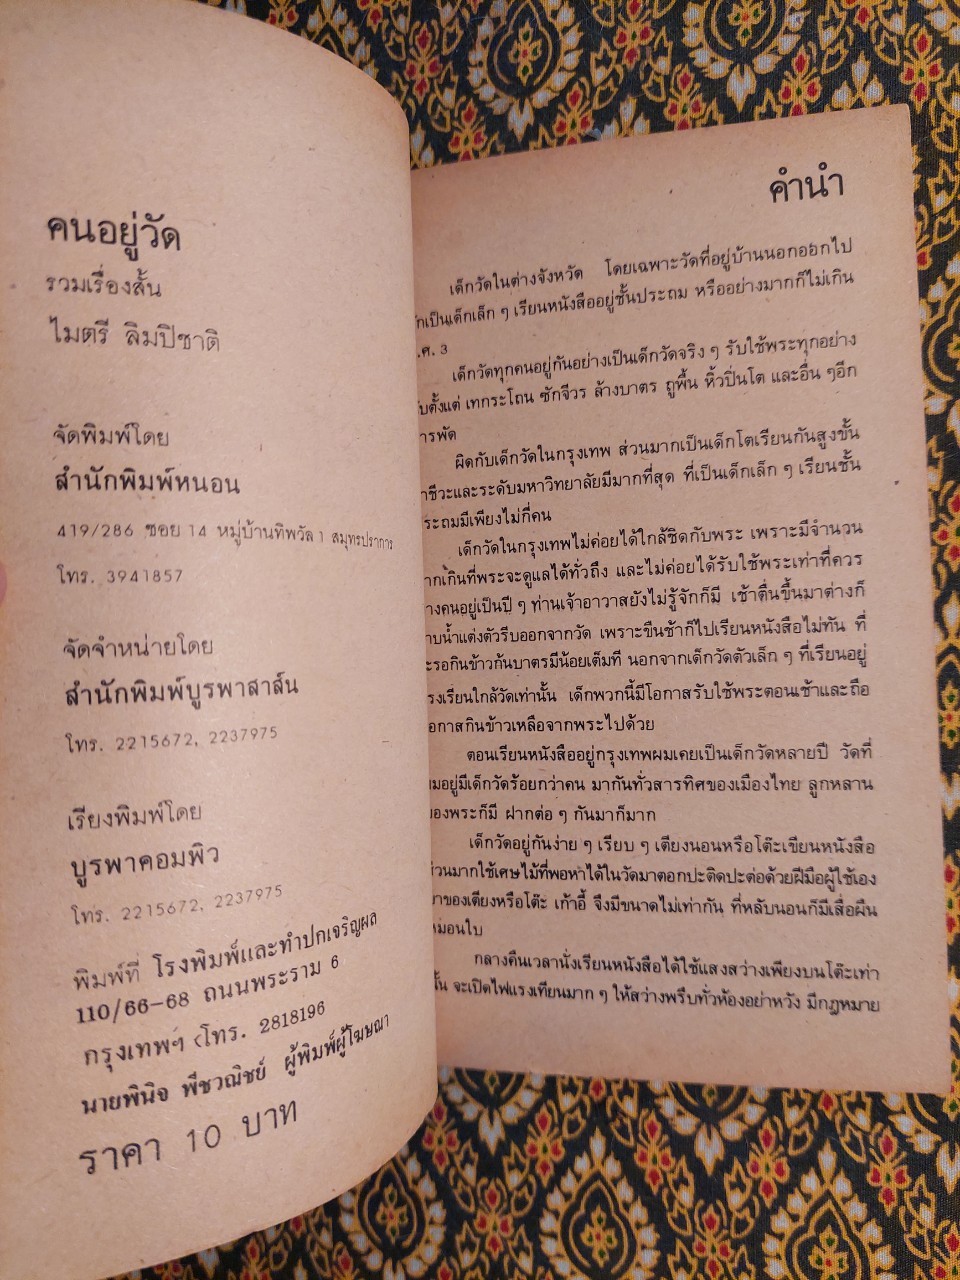 คนอยู่วัด
รวมเรื่องสั้น
ไมตรี ลิมปิชาติ
จัดพิมพ์โดย
สำนักพิมพ์หนอน
419/286 ซอย 14 หมู่บ้านทิพวัล 1 สมุทรปราการ
โทร. 3941857
จัดจำหน่ายโดย
สำนักพิมพ์บูรพาสาส์น
โทร. 2215672, 2237975
เรียงพิมพ์โดย
บูรพาคอมพิว
โทร. 2215672, 2237975
พิมพ์ที่ โรงพิมพ์และทำปกเจริญผล
110/66-68 ถนนพระราม 6
กรุงเทพฯ (โทร. 2818196
นายพินิจ พีชวณิชย์ ผู้พิมพ์ผู้โฆษณา
ราคา 10 บาท
คำนำ
เด็กวัดในต่างจังหวัด โดยเฉพาะวัดที่อยู่บ้านนอกออกไป
เป็นเด็กเล็ก ๆ เรียนหนังสืออยู่ชั้นประถม หรืออย่างมากก็ไม่เกิน
.ศ. 3
เด็กวัดทุกคนอยู่กันอย่างเป็นเด็กวัดจริง ๆ รับใช้พระทุกอย่าง
ตั้งแต่ เทกระโถน ซักจีวร ล้างบาตร ถูพื้น หิ้วปิ่นโต และอื่น ๆอีก
ารพัด
ผิดกับเด็กวัดในกรุงเทพ ส่วนมากเป็นเด็กโตเรียนกันสูงขั้น
าชีวะและระดับมหาวิทยาลัยมีมากที่สุด ที่เป็นเด็กเล็ก ๆ เรียนชั้น
ระถมมีเพียงไม่กี่คน
เด็กวัดในกรุงเทพไม่ค่อยได้ใกล้ชิดกับพระ เพราะมีจำนวน
ากเกินที่พระจะดูแลได้ทั่วถึง และไม่ค่อยได้รับใช้พระเท่าที่ควร
างคนอยู่เป็นปี ๆ ท่านเจ้าอาวาสยังไม่รู้จักก็มี เช้าตื่นขึ้นมาต่างก็
าบน้ำแต่งตัวรีบออกจากวัด เพราะขืนช้าก็ไปเรียนหนังสือไม่ทัน ที่
ะรอกินข้าวก้นบาตรมีน้อยเต็มที นอกจากเด็กวัดตัวเล็ก ๆ ที่เรียนอยู่
รงเรียนใกล้วัดเท่านั้น เด็กพวกนี้มีโอกาสรับใช้พระตอนเช้าและถือ
อกาสกินข้าวเหลือจากพระไปด้วย
ตอนเรียนหนังสืออยู่กรุงเทพผมเคยเป็นเด็กวัดหลายปี วัดที่
มอยู่มีเด็กวัดร้อยกว่าคน มากันทั่วสารทิศของเมืองไทย ลูกหลาน
องพระก็มี ฝากต่อ ๆ กันมาก็มาก
เด็กวัดอยู่กันง่าย ๆ เรียบ ๆ เตียงนอนหรือโต๊ะเขียนหนังสือ
่วนมากใช้เศษไม้ที่พอหาได้ในวัดมาตอกปะติดปะต่อด้วยฝีมือผู้ใช้เอง
าของเตียงหรือโต๊ะ เก้าอี้ จึงมีขนาดไม่เท่ากัน ที่หลับนอนก็มีเสื่อผืน
หมอนใบ
กลางคืนเวลานั่งเรียนหนังสือได้ใช้แสงสว่างเพียงบนโต๊ะเท่า
ั้น จะเปิดไฟแรงเทียนมาก ๆ ให้สว่างพรึบทั่วห้องอย่าหวัง มีกฎหมาย